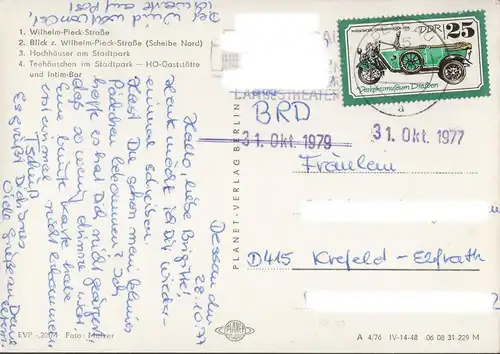 1. Wilhelm-Pieck-Straße
2. Blick z. Wilhelm-Pieck-Straße (Scheibe Nord)
3. Hochhäuser am Stadtpark
4. Teehäuschen im Stadtpark — HO-Gaststätte
und Intim-Bar
Der Wind will landen,
ich warte auf Post!
Dessau, den
28.10.77
Hallo, liebe Brigitte!
Heute möcht ich Dir wieder
einmal schreiben.
Hast Du schon mein kleines
Päckchen bekommen? Ich
hoffe es hat Dich nicht geärgert,
daß so wenig drinne war.
Eine bunte Karte habe
ich einmal nicht bekommen
Tschüß
Es grüßt Dich Ines
Viele Grüße an Deine
Eltern.
EVP -,20 M Foto: Melzer
PLANET-VERLAG BERLIN
PLANET
LANDESTHEATER
DDR 25
Verkehrsmuseum Dresden
31. Okt. 1979
31. Okt. 1977
BRD
Fräulein
D415 Krefeld-Elfrath
A 4/76 IV-14-48 06 08 31 229 M